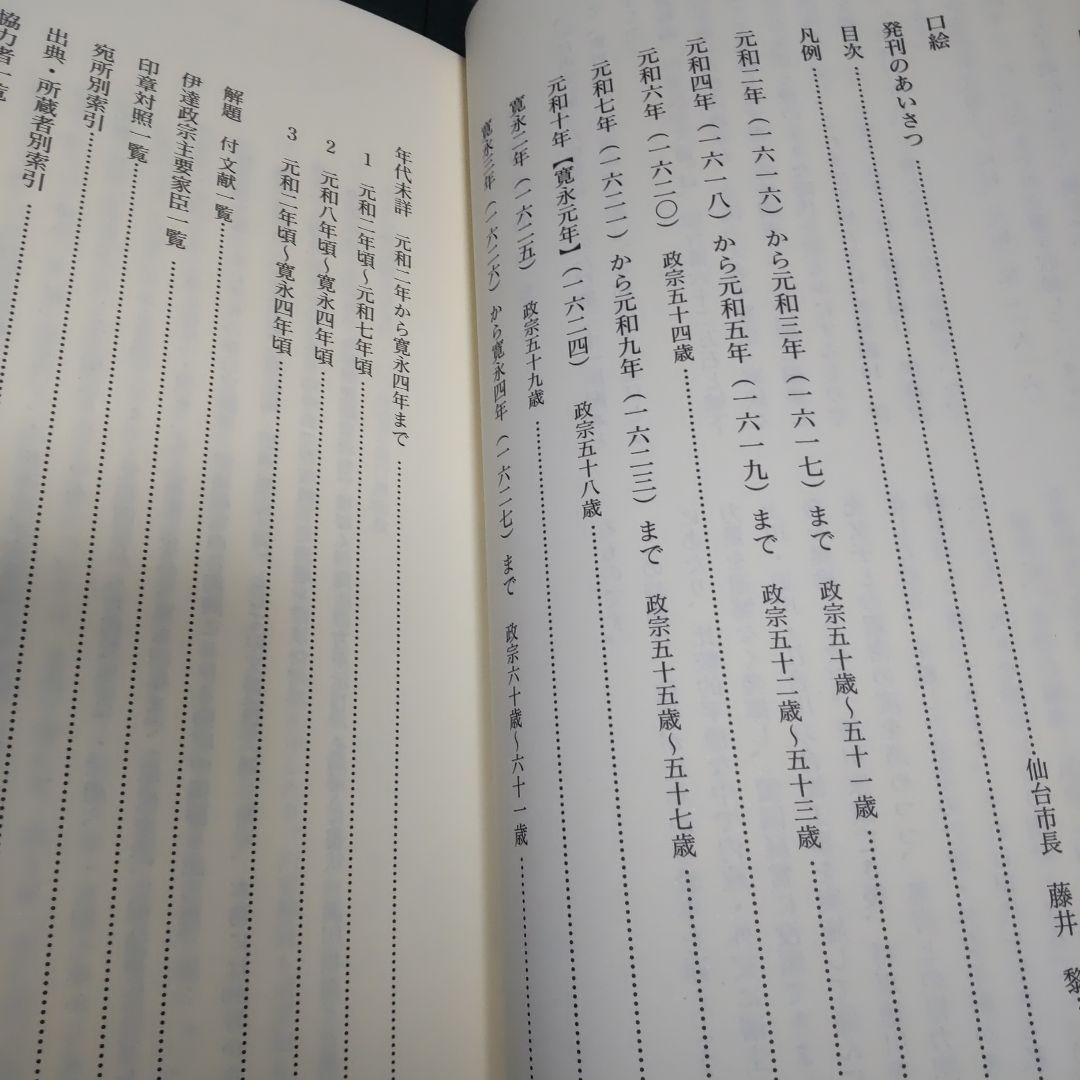 口絵
発刊のあいさつ……仙台市長 藤井 黎
目次……
凡例……
元和二年（一六一六）から元和三年（一六一七）まで 政宗五十歳〜五十一歳……
元和四年（一六一八）から元和五年（一六一九）まで 政宗五十二歳〜五十三歳……
元和六年（一六二〇） 政宗五十四歳……
元和七年（一六二一）から元和九年（一六二三）まで 政宗五十五歳〜五十七歳……
元和十年【寛永元年】（一六二四） 政宗五十八歳……
寛永二年（一六二五） 政宗五十九歳……
寛永三年（一六二六）から寛永四年（一六二七）まで 政宗六十歳〜六十一歳……
年代未詳 元和二年から寛永四年まで……
1 元和二年頃〜元和七年頃……
2 元和八年頃〜寛永四年頃……
3 元和二年頃〜寛永四年頃……
解題 付 文献一覧……
伊達政宗主要家臣一覧……
印章対照一覧……
宛所別索引……
出典・所蔵者別索引……
協力者一覧